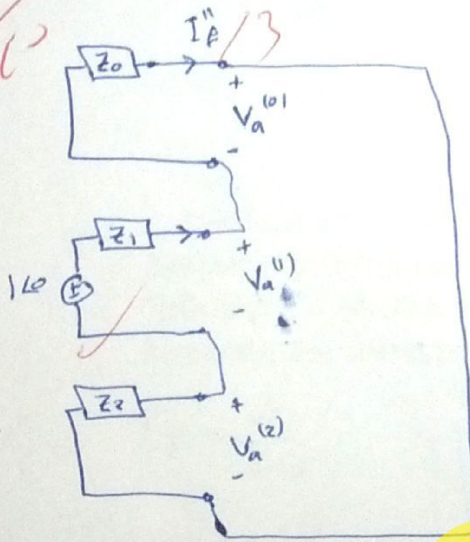 I"f / 3
Z0
+
Va(0)
-
Z1
+
1∠0
Va(1)
-
Z2
+
Va(2)
-